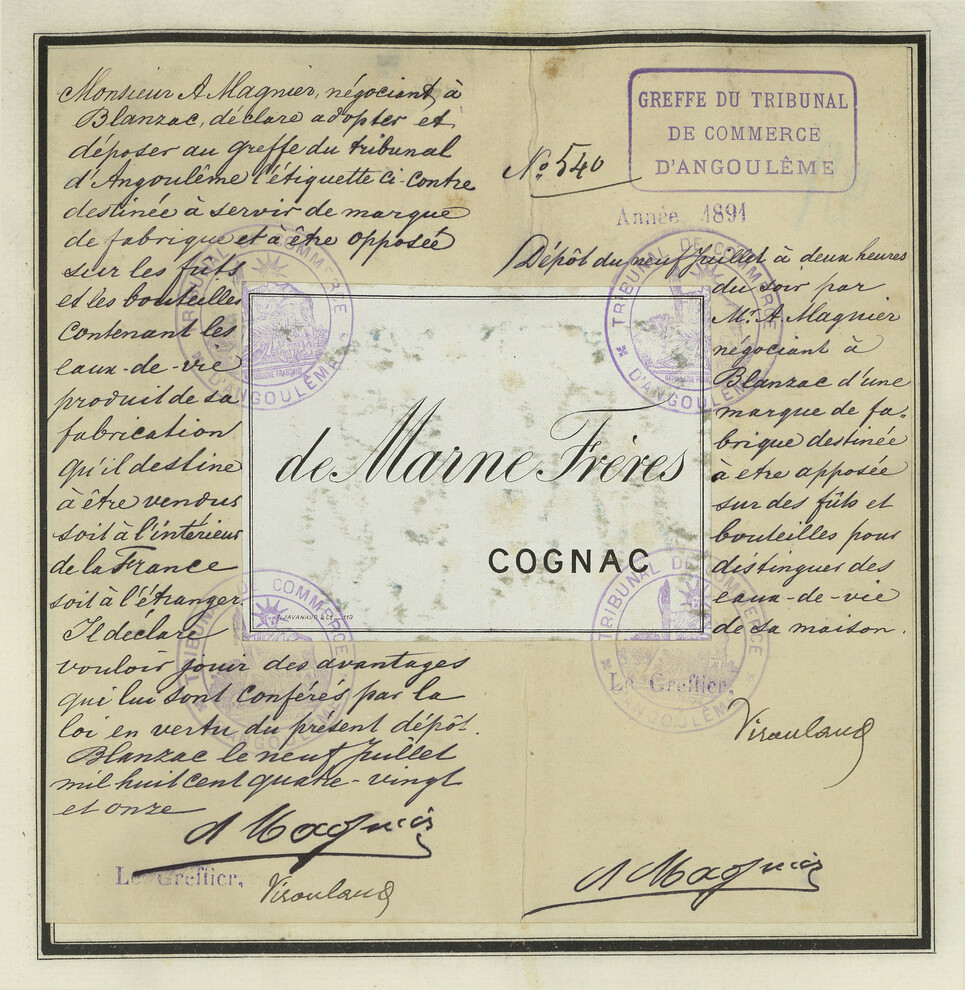 Monsieur A Magnier, négociant, à
Blanzac, déclare adopter et,
déposer au greffe du tribunal
d'Angoulême l'étiquette ci-contre
destinée à servir de marque
de fabrique et à être opposée
sur les fûts
et les bouteilles
contenant les
eaux-de-vie
produit de sa
fabrication
qu'il destine
à être vendus
soit à l'intérieur
de la France
soit à l'étranger.
Il déclare
vouloir jouir des avantages
qui lui sont conférés par la
loi en vertu du présent dépôt.
Blanzac le neuf Juillet
mil huit cent quatre-vingt
et onze
A Magnier
Le Greffier,
Virouland
GREFFE DU TRIBUNAL
DE COMMERCE
D'ANGOULÊME
No 540
Année 1891
Dépôt du neuf Juillet à deux heures
du soir par
Mr. A Magnier
négociant à
Blanzac d'une
marque de fa-
brique destinée
à etre apposée
sur des fûts et
bouteilles pour
distinguer des
eaux-de-vie
de sa maison.
Le Greffier,
Virouland
A Magnier
de Marne Frères
COGNAC
JAVANAUD & Cie
TRIBUNAL DE COMMERCE
D'ANGOULÊME
TRIBUNAL DE COMMERCE
D'ANGOULÊME
TRIBUNAL DE COMMERCE
D'ANGOULÊME
TRIBUNAL DE COMMERCE
D'ANGOULÊME